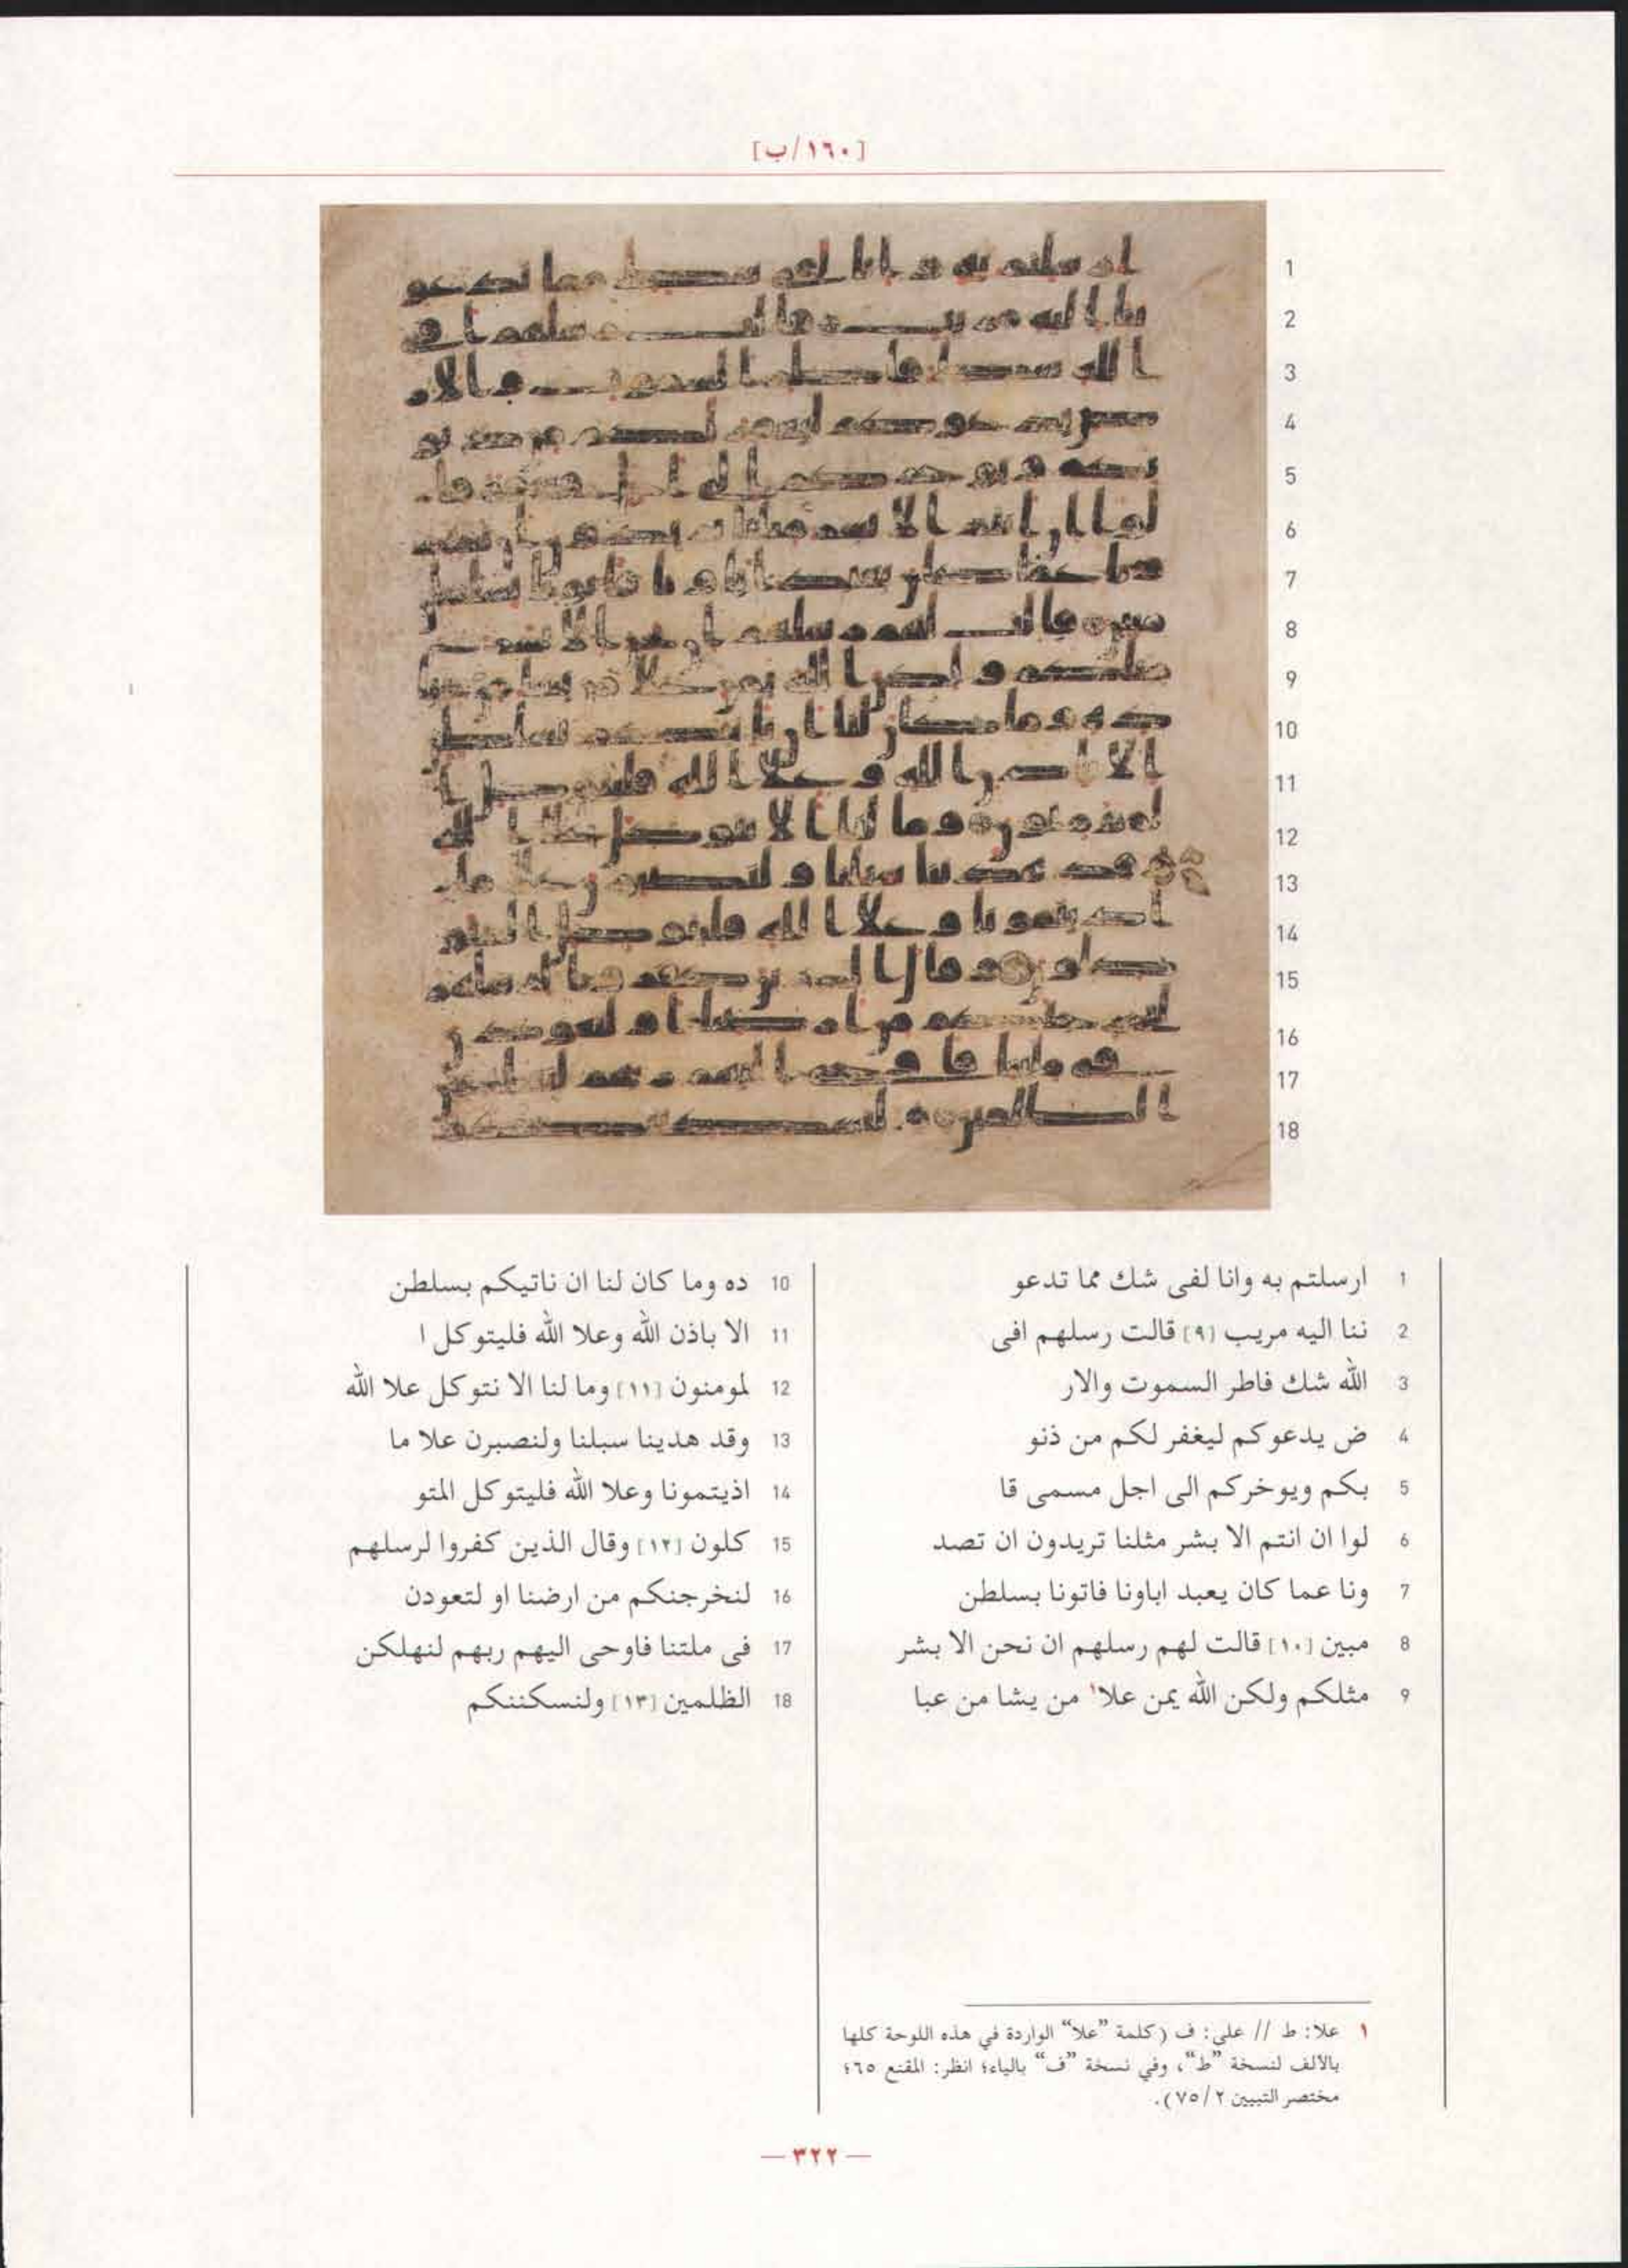 [١٦٠/ب]
1 ارسلتم به وانا لفى شك مما تدعو
2 ننا اليه مريب [٩] قالت رسلهم افى
3 الله شك فاطر السموت والار
4 ض يدعوكم ليغفر لكم من ذنو
5 بكم ويوخركم الى اجل مسمى قا
6 لوا ان انتم الا بشر مثلنا تريدون ان تصد
7 ونا عما كان يعبد اباونا فاتونا بسلطن
8 مبين [١٠] قالت لهم رسلهم ان نحن الا بشر
9 مثلكم ولكن الله يمن علا١ من يشا من عبا
10 ده وما كان لنا ان ناتيكم بسلطن
11 الا باذن الله وعلا الله فليتوكل ا
12 لمومنون [١١] وما لنا الا نتوكل علا الله
13 وقد هدينا سبلنا ولنصبرن علا ما
14 اذيتمونا وعلا الله فليتوكل المتو
15 كلون [١٢] وقال الذين كفروا لرسلهم
16 لنخرجنكم من ارضنا او لتعودن
17 فى ملتنا فاوحى اليهم ربهم لنهلكن
18 الظلمين [١٣] ولنسكننكم
١ علا: ط // على: ف (كلمة ”علا“ الواردة في هذه اللوحة كلها
بالألف لنسخة ”ط“، وفي نسخة ”ف“ بالياء؛ انظر: المقنع ٦٥؛
مختصر التبيين ٢/ ٧٥).
— ٣٢٢ —